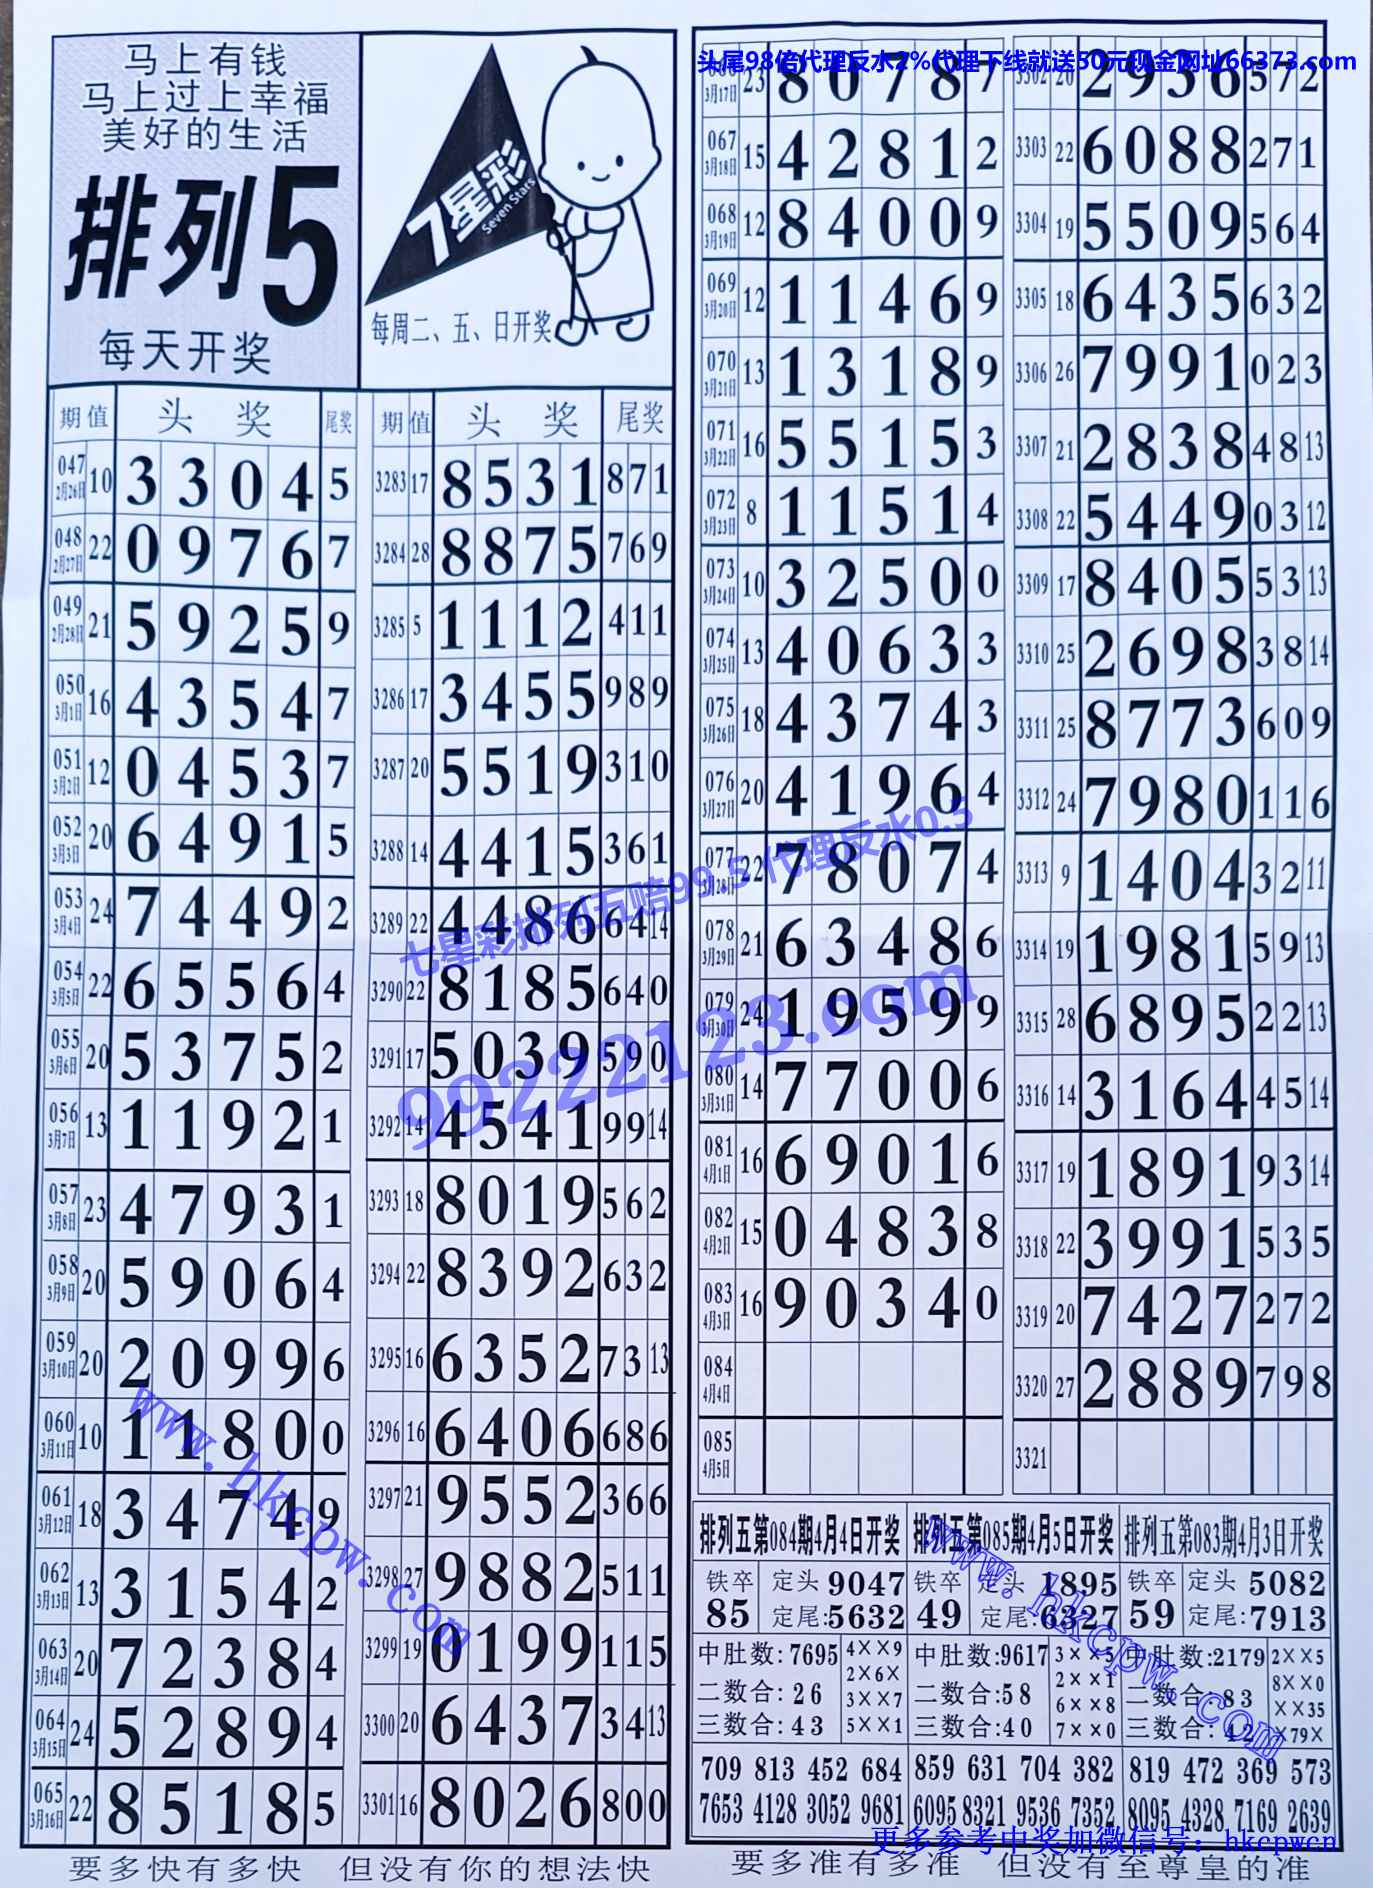 马上有钱
马上过上幸福
美好的生活
排列5
每天开奖
7星彩
Seven Stars
每周二、五、日开奖
期 值 头 奖 尾奖
047 2月26日 10 3 3 0 4 5
048 2月27日 22 0 9 7 6 7
049 2月28日 21 5 9 2 5 9
050 3月1日 16 4 3 5 4 7
051 3月2日 12 0 4 5 3 7
052 3月3日 20 6 4 9 1 5
053 3月4日 24 7 4 4 9 2
054 3月5日 22 6 5 5 6 4
055 3月6日 20 5 3 7 5 2
056 3月7日 13 1 1 9 2 1
057 3月8日 23 4 7 9 3 1
058 3月9日 20 5 9 0 6 4
059 3月10日 20 2 0 9 9 6
060 3月11日 10 1 1 8 0 0
061 3月12日 18 3 4 7 4 9
062 3月13日 13 3 1 5 4 2
063 3月14日 20 7 2 3 8 4
064 3月15日 24 5 2 8 9 4
065 3月16日 22 8 5 1 8 5
期 值 头 奖 尾奖
3283 17 8 5 3 1 8 7 1
3284 28 8 8 7 5 7 6 9
3285 5 1 1 1 2 4 1 1
3286 17 3 4 5 5 9 8 9
3287 20 5 5 1 9 3 1 0
3288 14 4 4 1 5 3 6 1
3289 22 4 4 8 6 6 4 14
3290 22 8 1 8 5 6 4 0
3291 17 5 0 3 9 5 9 0
3292 14 4 5 4 1 9 9 14
3293 18 8 0 1 9 5 6 2
3294 22 8 3 9 2 6 3 2
3295 16 6 3 5 2 7 3 13
3296 16 6 4 0 6 6 8 6
3297 21 9 5 5 2 3 6 6
3298 27 9 8 8 2 5 1 1
3299 19 0 1 9 9 1 1 5
3300 20 6 4 3 7 3 4 13
3301 16 8 0 2 6 8 0 0
要多快有多快 但没有你的想法快
头尾98倍代理反水2%代理下线就送50元现金网址66373.com
066 3月17日 23 8 0 7 8 7
067 3月18日 15 4 2 8 1 2
068 3月19日 12 8 4 0 0 9
069 3月20日 12 1 1 4 6 9
070 3月21日 13 1 3 1 8 9
071 3月22日 16 5 5 1 5 3
072 3月23日 8 1 1 5 1 4
073 3月24日 10 3 2 5 0 0
074 3月25日 13 4 0 6 3 3
075 3月26日 18 4 3 7 4 3
076 3月27日 20 4 1 9 6 4
077 3月28日 22 7 8 0 7 4
078 3月29日 21 6 3 4 8 6
079 3月30日 24 1 9 5 9 9
080 3月31日 14 7 7 0 0 6
081 4月1日 16 6 9 0 1 6
082 4月2日 15 0 4 8 3 8
083 4月3日 16 9 0 3 4 0
084 4月4日
085 4月5日
3302 20 2 9 3 6 5 7 2
3303 22 6 0 8 8 2 7 1
3304 19 5 5 0 9 5 6 4
3305 18 6 4 3 5 6 3 2
3306 26 7 9 9 1 0 2 3
3307 21 2 8 3 8 4 8 13
3308 22 5 4 4 9 0 3 12
3309 17 8 4 0 5 5 3 13
3310 25 2 6 9 8 3 8 14
3311 25 8 7 7 3 6 0 9
3312 24 7 9 8 0 1 1 6
3313 9 1 4 0 4 3 2 11
3314 19 1 9 8 1 5 9 13
3315 28 6 8 9 5 2 2 13
3316 14 3 1 6 4 4 5 14
3317 19 1 8 9 1 9 3 14
3318 22 3 9 9 1 5 3 5
3319 20 7 4 2 7 2 7 2
3320 27 2 8 8 9 7 9 8
3321
七星彩排列五赔99.5代理反水0.5
99222123.com
www.hkcpw.com
排列五第084期4月4日开奖
铁卒 85
定头 9047
定尾:5632
中肚数:7695
二数合:26
三数合:43
4××9
2×6×
3××7
5××1
709 813 452 684
7653 4128 3052 9681
排列五第085期4月5日开奖
铁卒 49
定头 1895
定尾:6327
中肚数:9617
二数合:58
三数合:40
3××5
2××1
6××8
7××0
859 631 704 382
6095 8321 9536 7352
排列五第083期4月3日开奖
铁卒 59
定头 5082
定尾:7913
中肚数:2179
二数合:83
三数合:42
2××5
8××0
××35
×79×
819 472 369 573
8095 4328 7169 2639
www.hkcpw.com
更多参考中奖加微信号: hkcpwcn
要多准有多准 但没有至尊皇的准